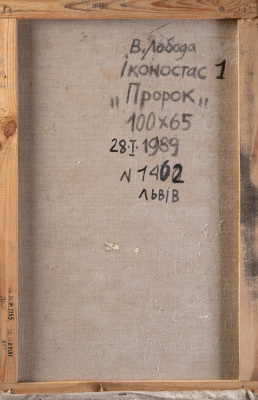 В. Лобода
Іконостас 1
„Пророк„
100х65
28·I·1989
N 1402
ЛЬВІВ